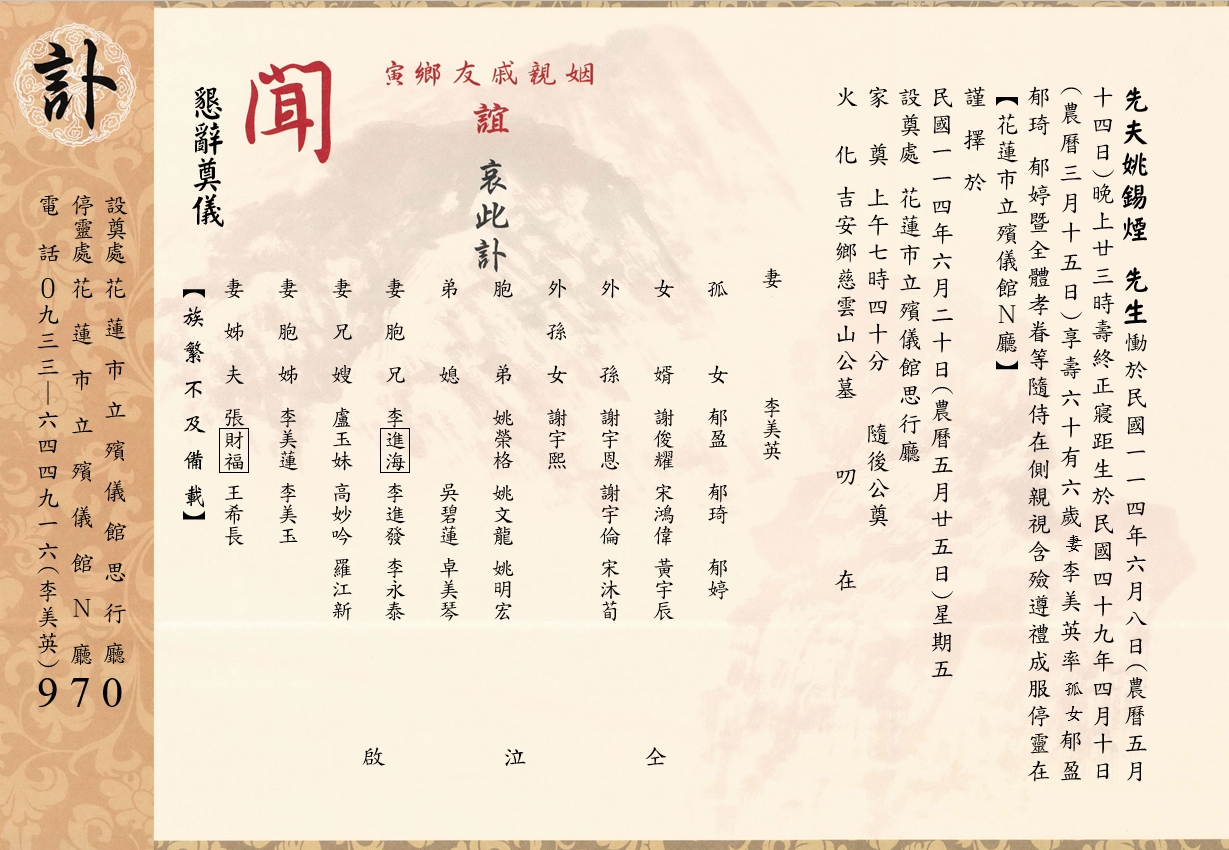 先夫姚錫煙 先生慟於民國一一四年六月八日(農曆五月
十四日)晚上廿三時壽終正寢距生於民國四十九年四月十日
(農曆三月十五日)享壽六十有六歲妻李美英率孤女郁盈
郁琦 郁婷暨全體孝眷等隨侍在側親視含殮遵禮成服停靈在
【花蓮市立殯儀館N廳】
謹擇於
民國一一四年六月二十日(農曆五月廿五日)星期五
設奠處 花蓮市立殯儀館思行廳
家奠 上午七時四十分 隨後公奠
火化 吉安鄉慈雲山公墓 叨在
姻親戚友鄉寅
誼
哀此訃
聞
懇辭奠儀
妻 李美英
孤女 郁盈 郁琦 郁婷
女婿 謝俊耀 宋鴻偉 黃宇辰
外孫 謝宇恩 謝宇倫 宋沐荀
外孫女 謝宇熙
胞弟 姚榮格 姚文龍 姚明宏
弟媳 吳碧蓮 卓美琴
妻胞兄 李進海 李進發 李永泰
妻兄嫂 盧玉妹 高妙吟 羅江新
妻胞姊 李美蓮 李美玉
妻姊夫 張財福 王希長
【族繁不及備載】
仝泣啟
訃
設奠處 花蓮市立殯儀館思行廳
停靈處 花蓮市立殯儀館N廳
電話 0九三三—六四四九一六(李美英)
970